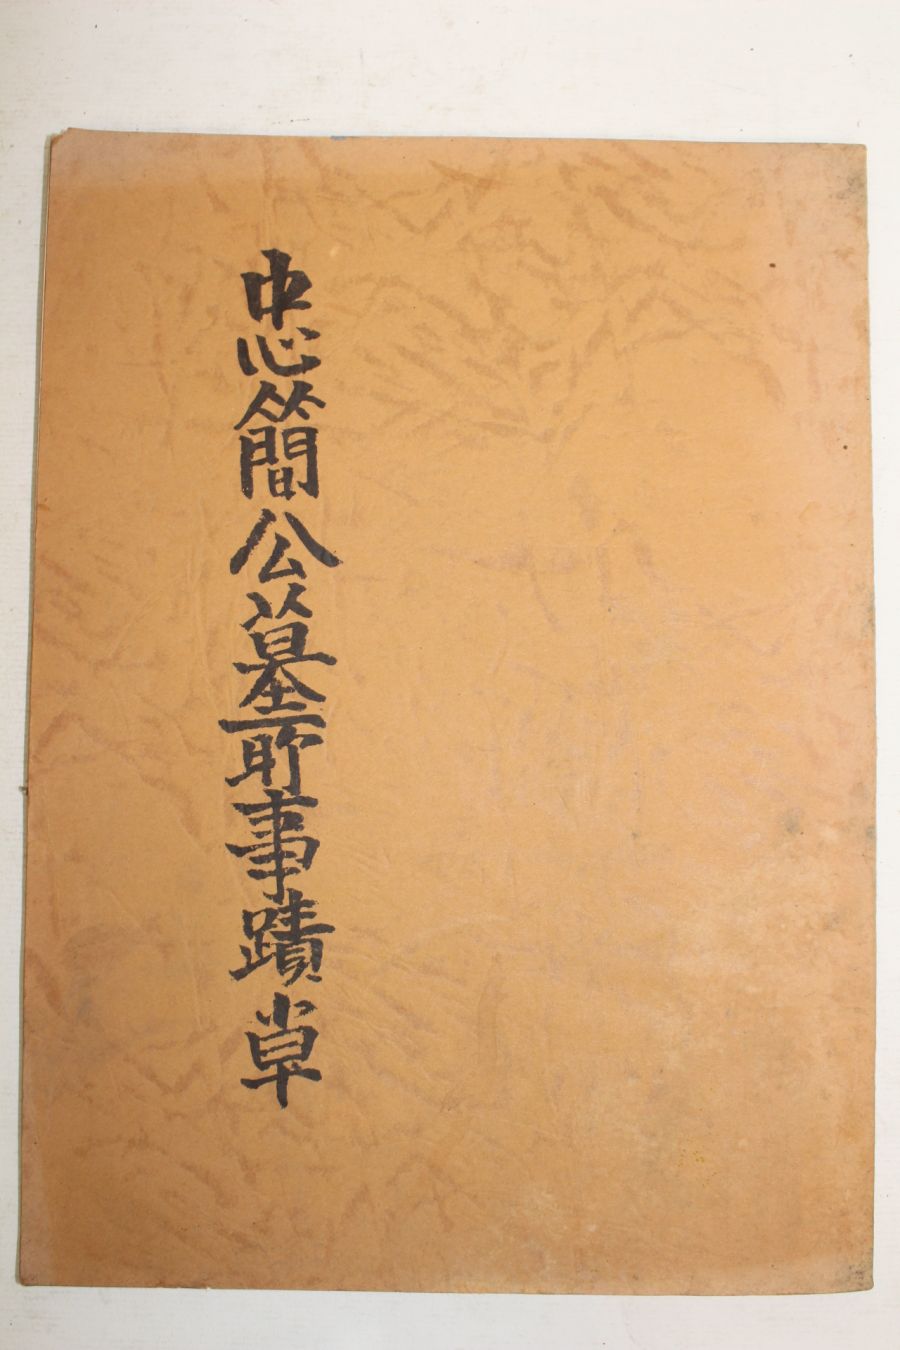 忠簡公墓所事蹟草